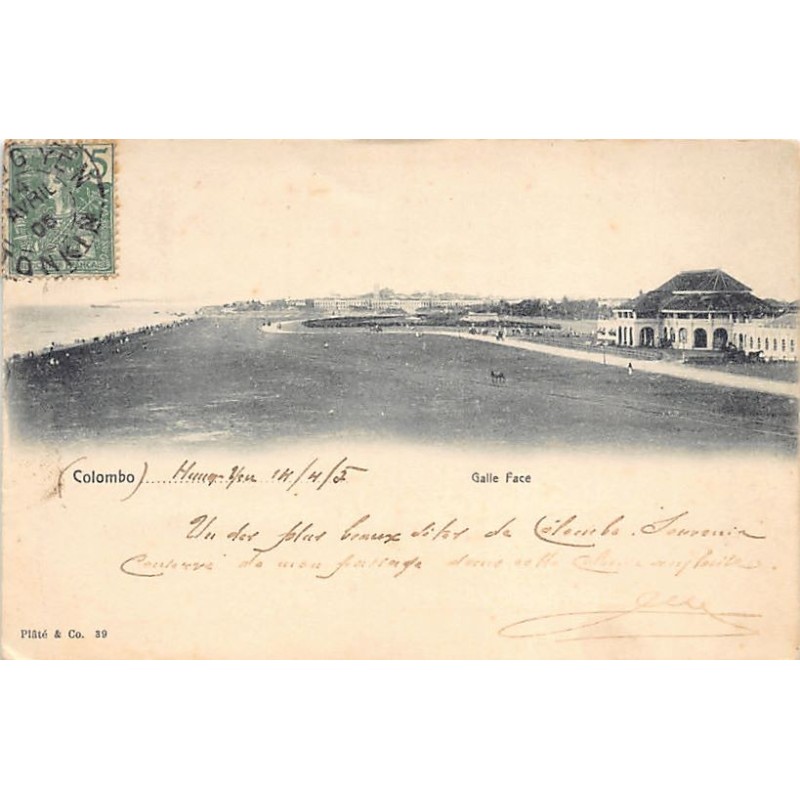 5
HUNG YEN
14
AVRIL
05
TONKIN
(Colombo) Hung-Yen 14/4/5
Galle Face
Un des plus beaux sites de Colombo. Souvenir
Conservé de mon passage dans cette colonie anglaise.
Plâté & Co. 39